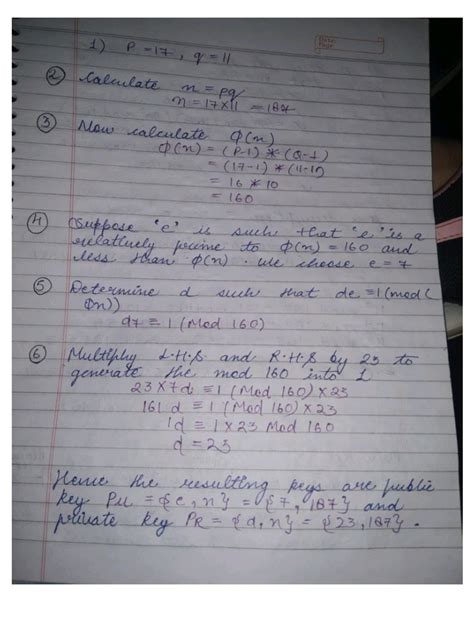 Date
Page
1) P = 17, q = 11
② Calculate n = pq
n = 17 × 11 = 187
③ Now calculate Φ(n)
Φ(n) = (P-1) * (Q-1)
= (17-1) * (11-1)
= 16 * 10
= 160
④ Suppose 'e' is such that 'e' is a
relatively prime to Φ(n) = 160 and
less than Φ(n). We choose e = 7
⑤ Determine d such that de ≡ 1 (mod (
Φn))
d7 ≡ 1 (Mod 160)
⑥ Multiphy L.H.S and R.H.S by 23 to
generate the mod 160 into 1
23 × 7d ≡ 1 (Mod 160) × 23
161 d ≡ 1 (Mod 160) × 23
1d ≡ 1 × 23 Mod 160
d = 23
Hence the resulting keys are public
key PU = {e, n} = {7, 187} and
private key PR = {d, n} = {23, 187}.